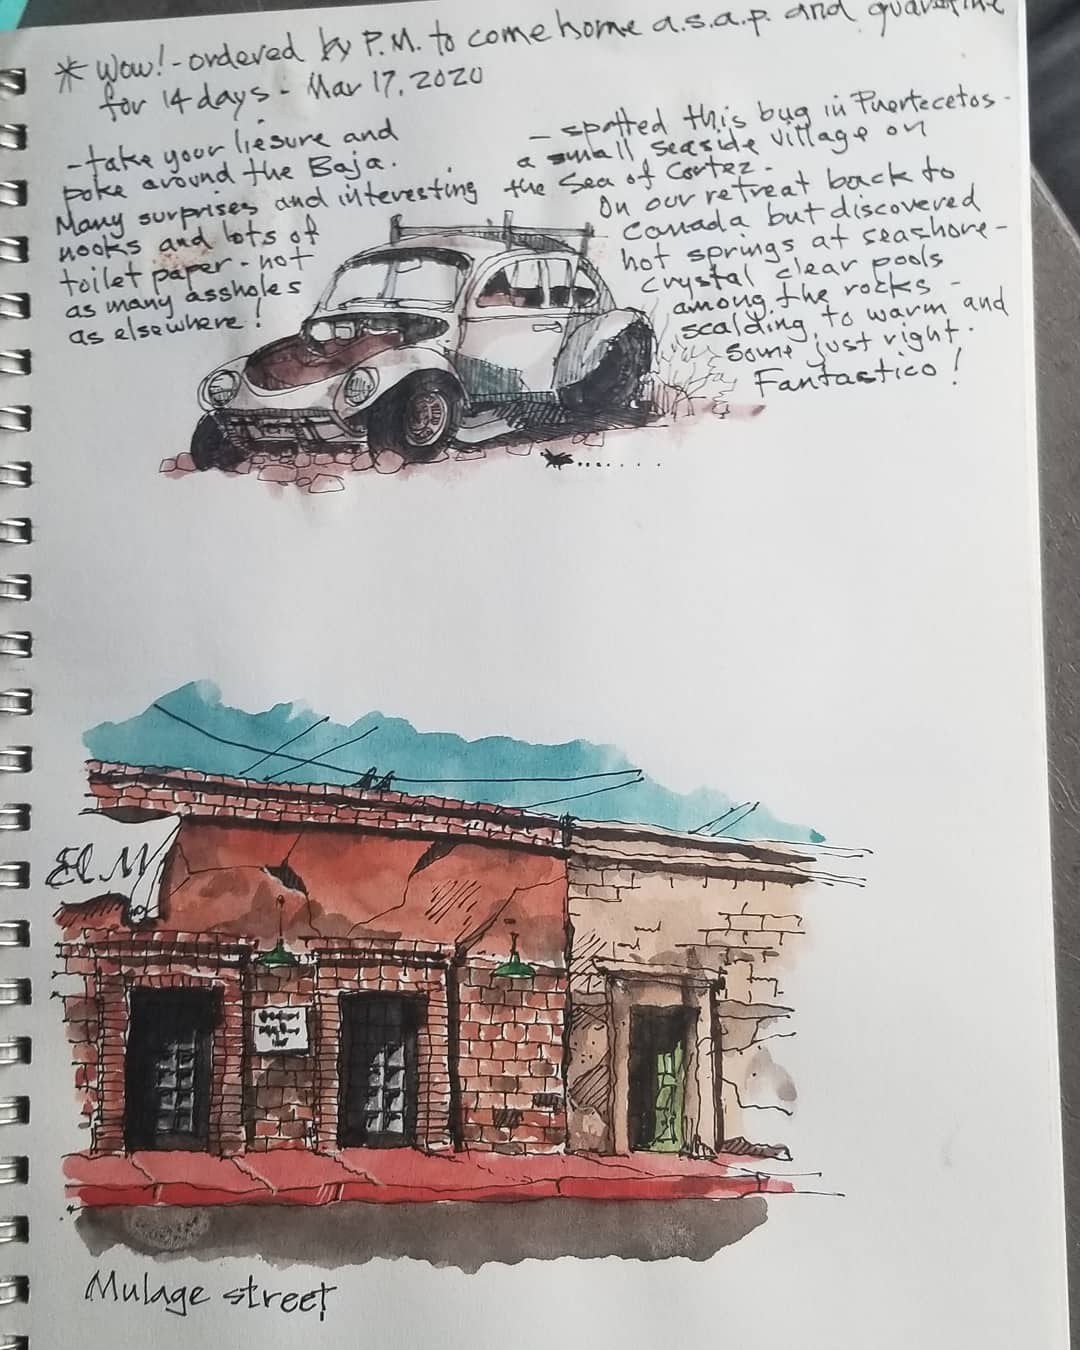 * Wow! - ordered by P.M. to come home a.s.a.p. and quarantine
for 14 days - Mar 17, 2020
- take your liesure and
poke around the Baja.
Many surprises and interesting
nooks and lots of
toilet paper - not
as many assholes
as elsewhere!
- spotted this bug in Puertecetos -
a small seaside village on
the Sea of Cortez.
On our retreat back to
Canada but discovered
hot springs at seashore -
crystal clear pools
among the rocks -
scalding, to warm and
some just right.
Fantastico!
EL M
Mulage street